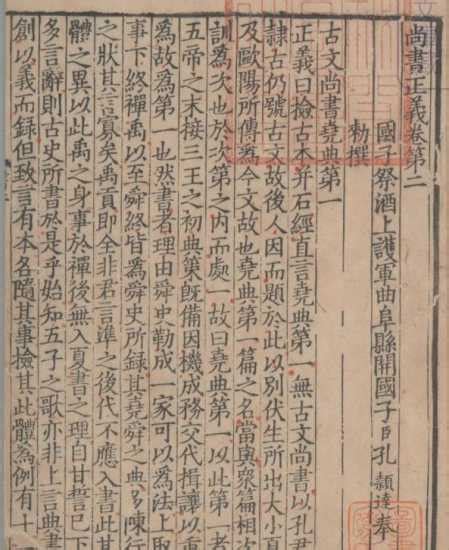 尚書正義卷第二
國子祭酒上護軍曲阜縣開國子臣孔穎達奉
勑撰
古文尚書堯典第一
正義曰檢古本并石經直言堯典第一無古文尚書以孔君
隸古仍號古文故後人因而題於此以別伏生所出大小夏
及歐陽所傳爲今文故也堯典第一篇之名當與衆篇相次
訓爲次也於次第之內而處一故曰堯典第一以此第一者
五帝之末接三王之初典策旣備因機成務交代揖讓以重
爲故爲第一也然書者理由舜史勒成一家可以爲法上取
事下終禪禹以至舜終皆爲舜史所錄其堯舜之典多陳行
之狀其言寡矣禹貢即全非君言準之後代不應入書此其
體之異以此禹之身事於禪後無入夏書之理自甘誓已下
多言辭則古史所書於是乎始知五子之歌亦非上言典書
創以義而録但致言有本各隨其事檢其此體爲例有十